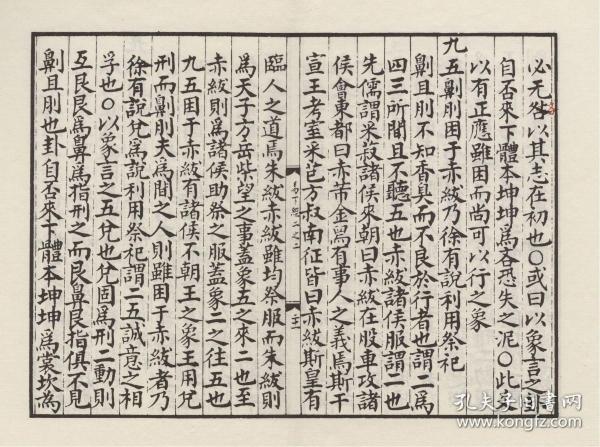 必无咎以其志在初也〇或曰以象言之
自否來下體本坤坤為吝恐失之泥〇此爻
以有正應雖困而尚可以行之象
九五劓刖困于赤紱乃徐有說利用祭祀
劓且刖不知香臭而不良於行者也謂二為
四三所閒且不聽五也赤紱諸侯服謂二也
先儒謂采菽諸侯來朝曰赤紱在股車攻諸
侯會東都曰赤芾金舄有事人之義焉斯干
宣王考室采芑方叔南征皆曰赤紱斯皇有
臨人之道焉朱紱赤紱雖均祭服而朱紱則
為天子方岳柴望之事蓋象五之來二也至
赤紱則為諸侯助祭之服蓋象二之往五也
九五困于赤紱有諸侯不朝王之象王用兌
刑而劓刖夫為間之人則雖困于赤紱者乃
徐有說兌為說利用祭祀謂二五誠意之相
孚也〇以象言之五兌也兌固為刑二動則
互艮艮為鼻為指刑之而艮鼻艮指俱不見
劓且刖也卦自否來下體本坤坤為裳坎為
孔夫子旧书网